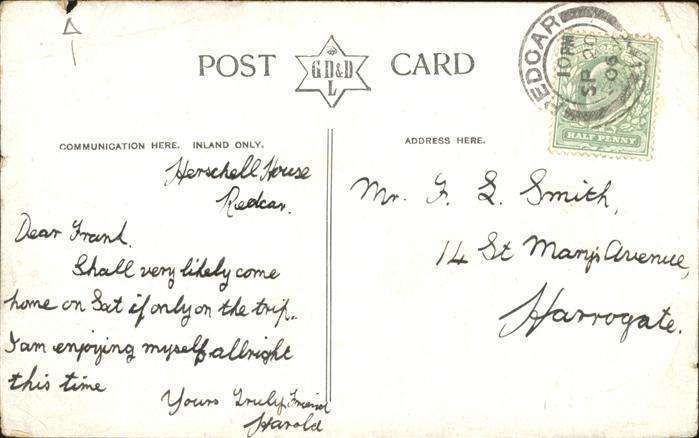 POST CARD
GD&D
L
COMMUNICATION HERE. INLAND ONLY.
Herschell House
Redcar.
Dear Frank.
Shall very likely come
home on Sat if only on the trip.
I am enjoying myself allright
this time
Yours Truly Friend
Harold
ADDRESS HERE.
Mr. F. L. Smith,
14 St Marys Avenue,
Harrogate.
REDCAR
10 PM
SP 20
06
HALF PENNY